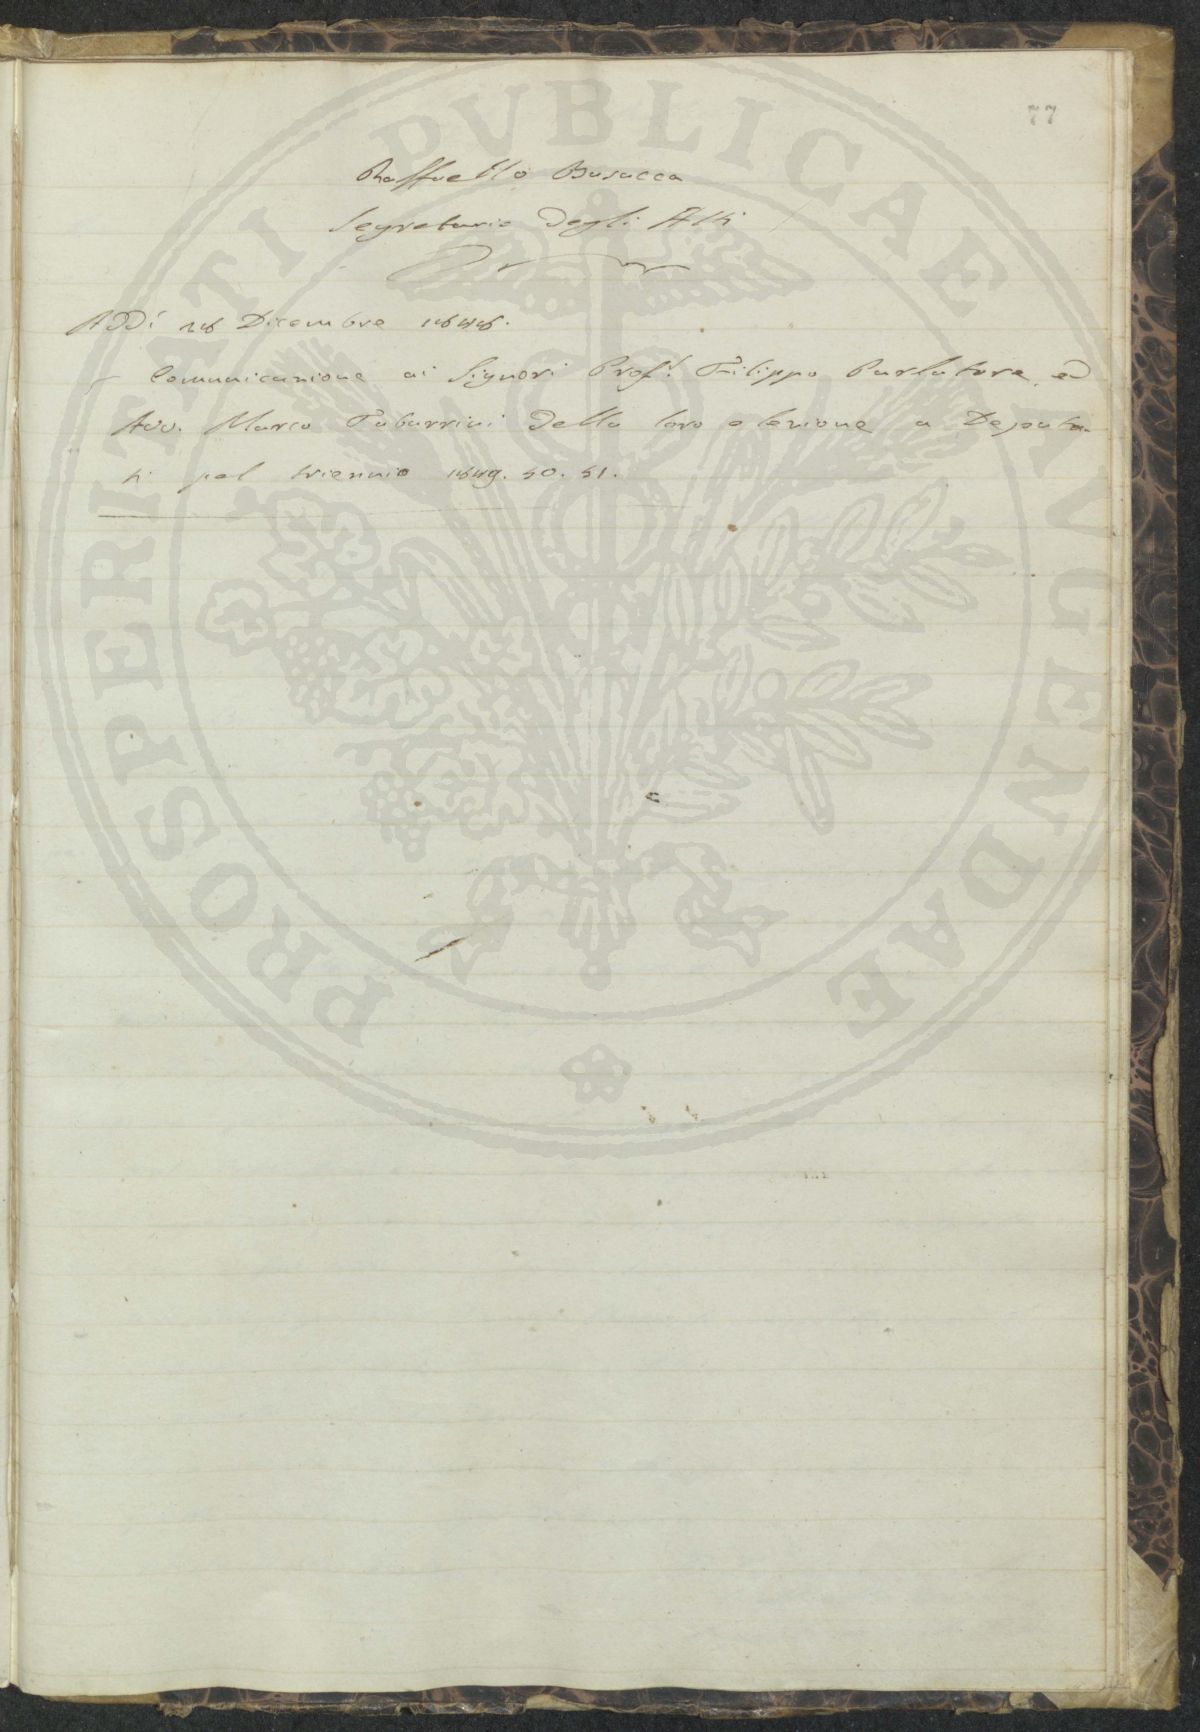 77
Raffaello Busacca
Segretario degli Atti
Addì 28 Dicembre 1848.
Comunicazione ai Signori Prof.r Filippo Parlatore, ed
Avv. Marco Tabarrini della loro elezione a Deputa-
ti pel triennio 1849. 50. 51.
PROSPERITATI PVBLICAE AVGENDAE